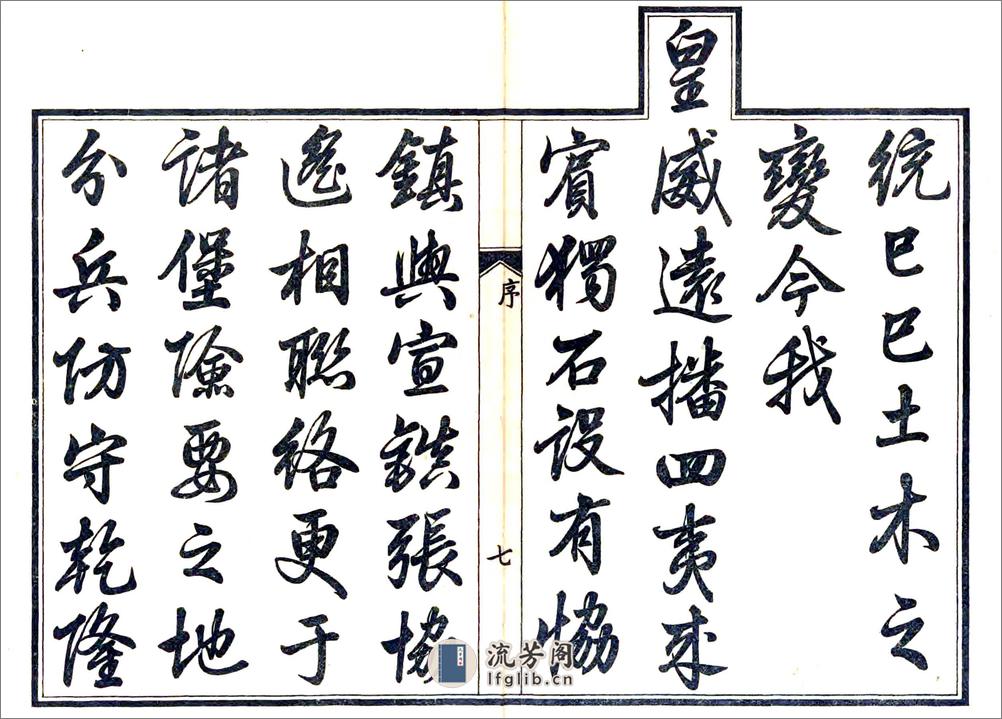 統己巳土木之
變今我
皇威遠播四夷来
賓獨石設有協
序
七
鎮與宣鎮張協
遙相聯絡更于
諸堡險要之地
分兵防守乾隆
流芳阁
lfglib.cn